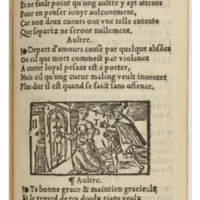 Il ne fault point qu'ung aultre y ayt attente
Pour en penser iouyr aulcunement,
Car noz deux cueurs ont vne telle entente
Que separez ne seront nullement.
Aultre.
Depart d'amours causé par quelque absēce
Où est que mort commest par violence
A cueur loyal pesant est à porter,
Mais cil qu'ung cueur maling veult
Plus dur il est quand se faict sans offence.
¶ Aultre.
Ta bonne grace & maintien gracieulx
Et le regard de tes doulx rians yeulx